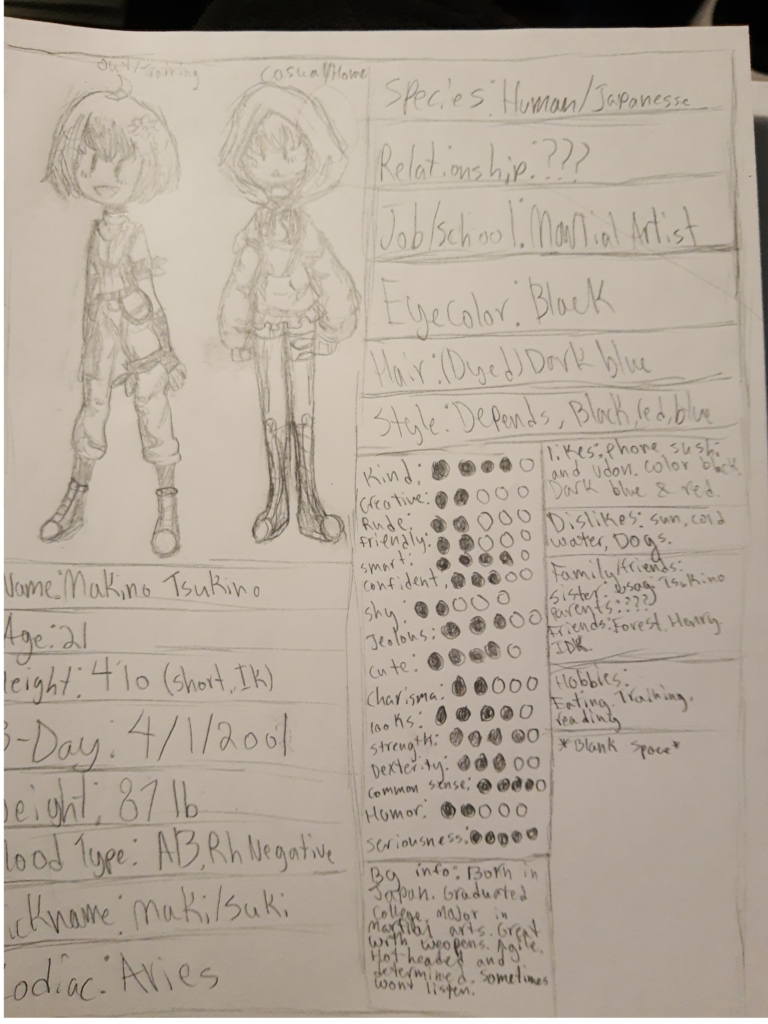 Out/Training
Casual/Home
Species: Human/Japanesse
Relationship: ???
Job/school: Martial Artist
Eyecolor: Black
Hair: (Dyed) Dark blue
Style: Depends, Black, red, blue
Name: Makino Tsukino
Age: 21
eight: 4'10 (short, IK)
B-Day: 4/1/2001
eight: 87 lb
lood Type: AB, Rh Negative
ickname: Maki/Suki
odiac: Aries
Kind:
Creative:
Rude:
friendly:
smart:
confident,
shy:
Jealous:
Cute:
Charisma:
looks:
strength:
Dexterity:
common sense:
Humor:
Seriousness:
Bg info: Born in
Japan. Graduated
College, Major in
Martial arts. Great
with weopens. Agile.
Hotheaded and
determined. sometimes
wont listen.
likes: phone sushi
and udon. color black
Dark blue & red.
Dislikes: sun, cold
water, Dogs.
Family/friends:
Sister: Tsukino
parents: ???
friends: Forest, Henry
IDK
Hobbies:
Eating. Training.
reading
*Blank Space*